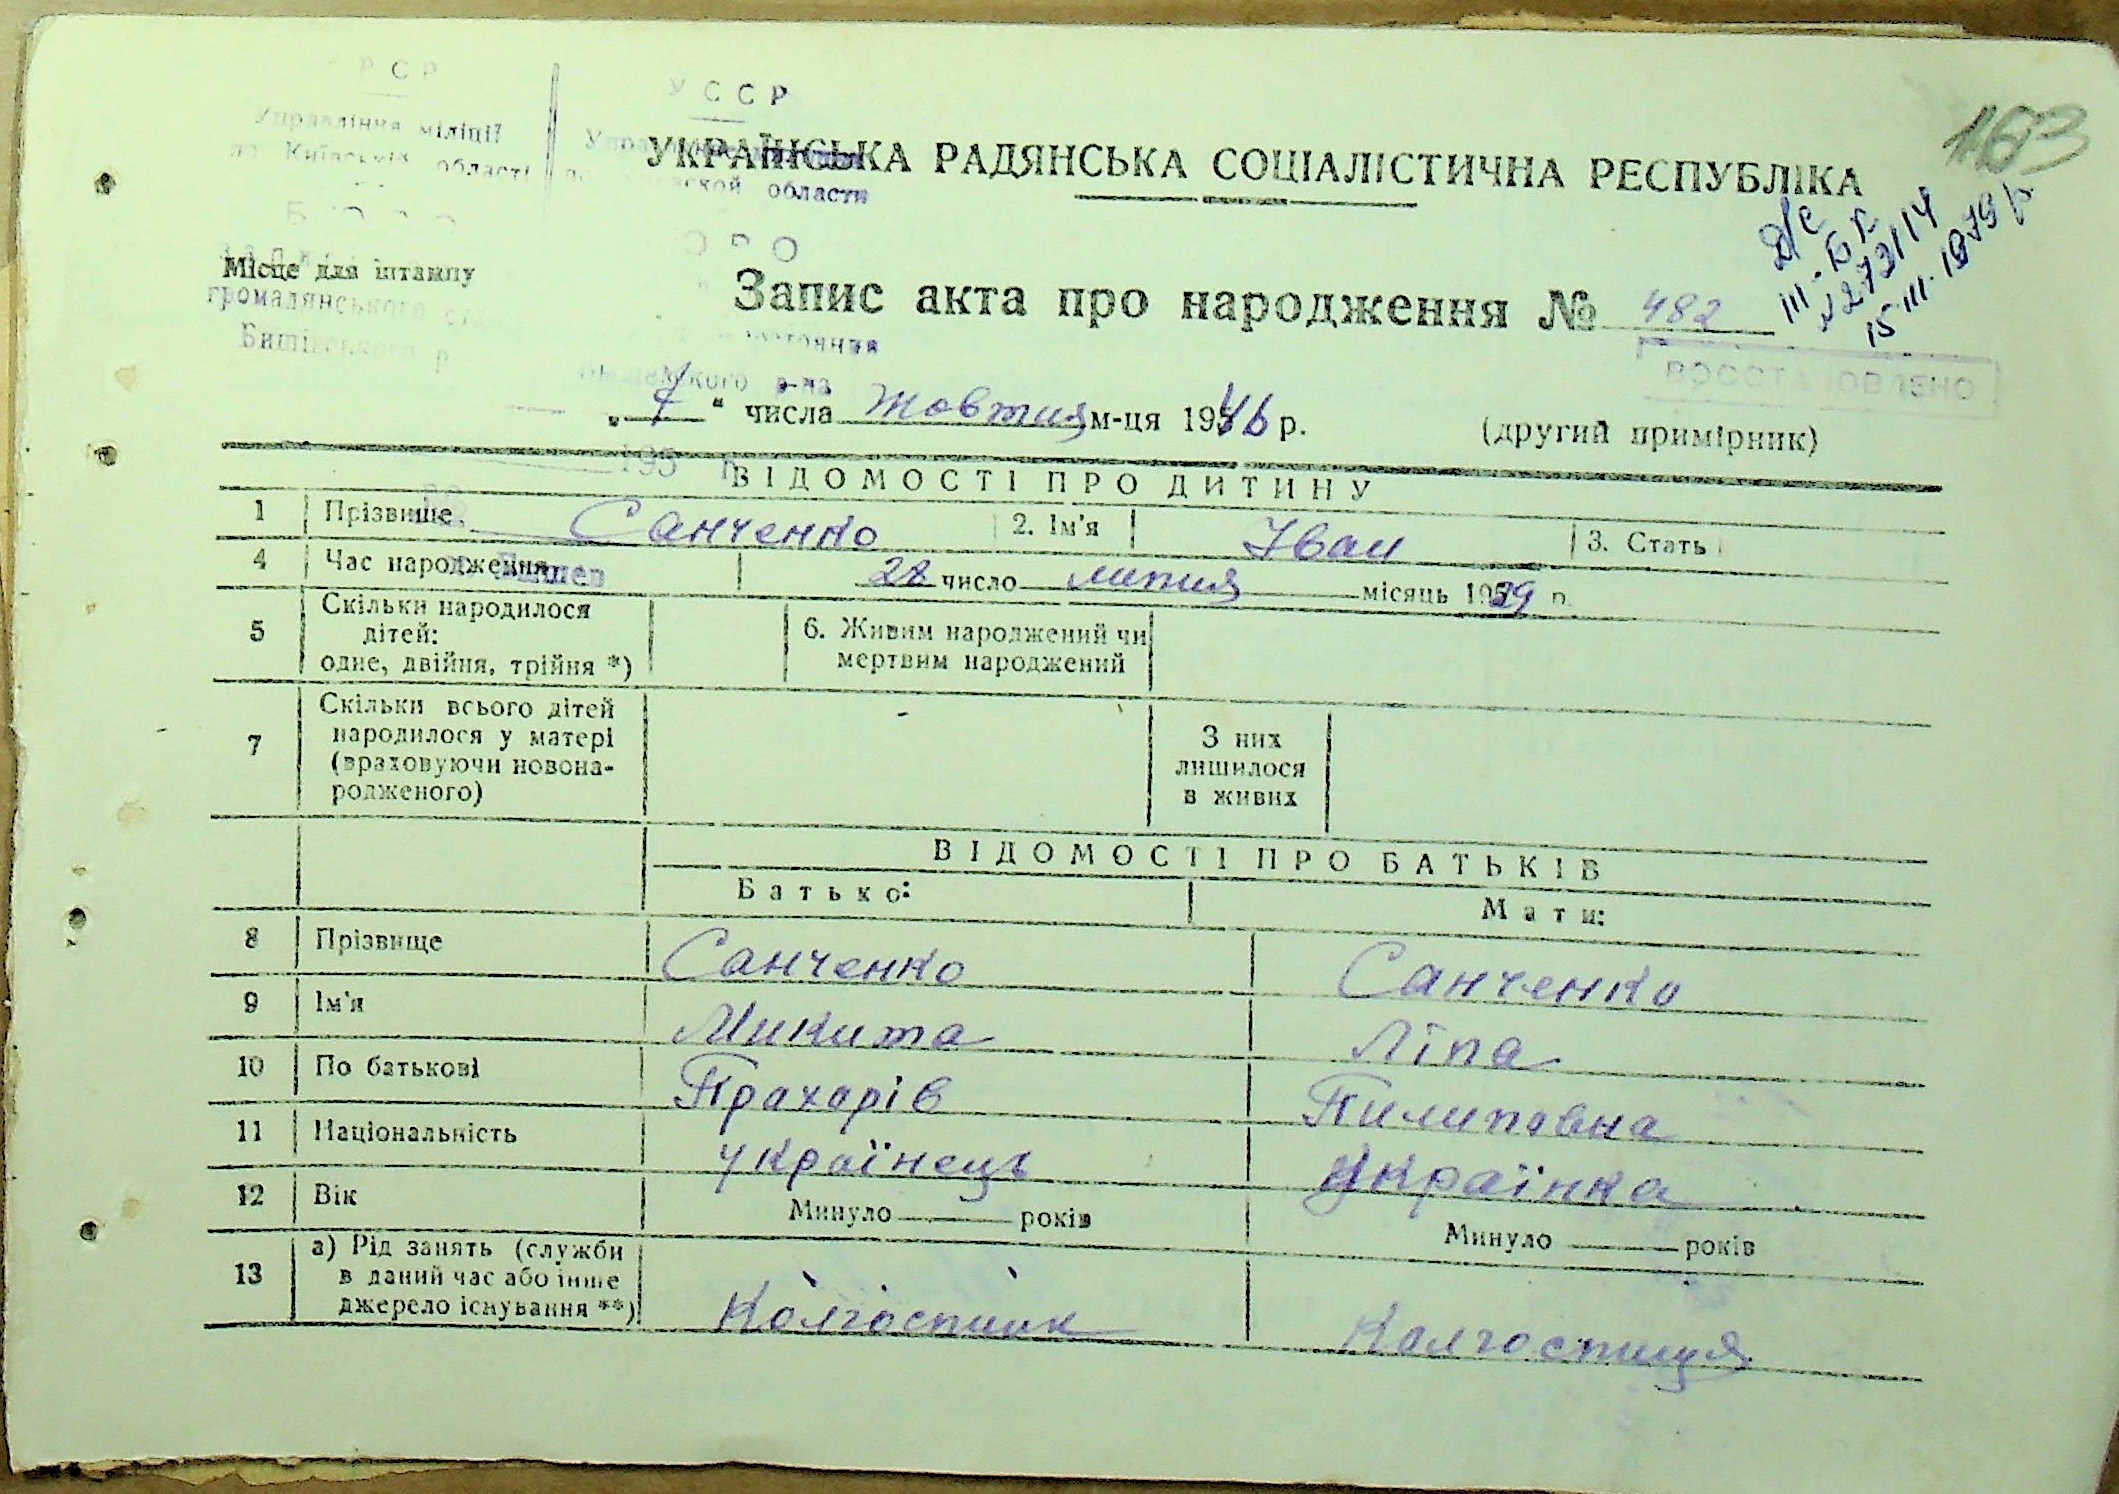 Р С Р
У С С Р
Управління міліції
по Київській області
ской области
УКРАЇНСЬКА РАДЯНСЬКА СОЦІАЛІСТИЧНА РЕСПУБЛІКА
III-БК
15 III-1979 р
Місце для штампу
громадянського
Запис акта про народження № 482
ВОССТАНОВЛЕНО
„ 7 “ числа жовтня м-ця 1946 р. (другий примірник)
195
ВІДОМОСТІ ПРО ДИТИНУ
1 Прізвище Санченко 2. Ім'я Іван 3. Стать
4 Час народження 28 число липня місяць 1939 р.
5 Скільки народилося
дітей:
одне, двійня, трійня *)
6. Живим народжений чи
мертвим народжений
7 Скільки всього дітей
народилося у матері
(враховуючи новона-
родженого)
З них
лишилося
в живих
ВІДОМОСТІ ПРО БАТЬКІВ
Батько: Мати:
8 Прізвище Санченко Санченко
9 Ім'я Микита Ліпа
10 По батькові Прахорів Пилиповна
11 Національність українець Українка
12 Вік Минуло років Минуло років
13 а) Рід занять (служби
в даний час або інше
джерело існування **)
Колгоспник Колгоспниця